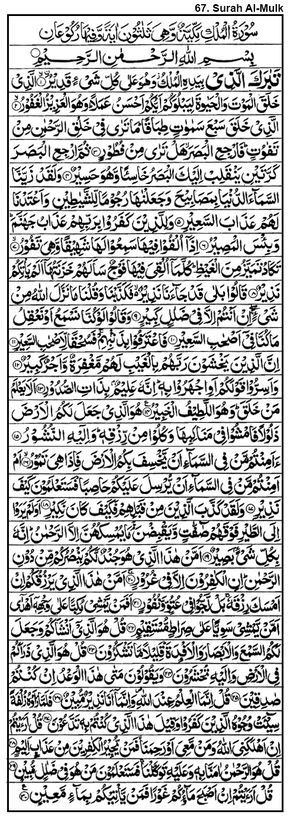 67. Surah Al-Mulk
سُوْرَةُ الْمُلْكِ مَكِّيَّةٌ وَّهِيَ ثَلٰثُوْنَ اٰيَةً وَّفِيْهَا رُكُوْعَانِ
بِسْمِ اللهِ الرَّحْمٰنِ الرَّحِيْمِ
تَبٰرَكَ الَّذِيْ بِيَدِهِ الْمُلْكُ وَهُوَ عَلٰى كُلِّ شَيْءٍ قَدِيْرُ ۙ﴿۱﴾ الَّذِيْ
خَلَقَ الْمَوْتَ وَالْحَيٰوةَ لِيَبْلُوَكُمْ اَيُّكُمْ اَحْسَنُ عَمَلًا وَهُوَ الْعَزِيْزُ الْغَفُوْرُ ﴿۲﴾
الَّذِيْ خَلَقَ سَبْعَ سَمٰوٰتٍ طِبَاقًا مَا تَرٰى فِيْ خَلْقِ الرَّحْمٰنِ مِنْ
تَفٰوُتٍ فَارْجِعِ الْبَصَرَ هَلْ تَرٰى مِنْ فُطُوْرٍ ﴿۳﴾ ثُمَّ ارْجِعِ الْبَصَرَ
كَرَّتَيْنِ يَنْقَلِبْ اِلَيْكَ الْبَصَرُ خَاسِئًا وَّهُوَ حَسِيْرٌ ﴿۴﴾ وَلَقَدْ زَيَّنَّا
السَّمَآءَ الدُّنْيَا بِمَصَابِيْحَ وَجَعَلْنٰهَا رُجُوْمًا لِّلشَّيٰطِيْنِ وَاَعْتَدْنَا
لَهُمْ عَذَابَ السَّعِيْرِ ﴿۵﴾ وَلِلَّذِيْنَ كَفَرُوْا بِرَبِّهِمْ عَذَابُ جَهَنَّمَ
وَبِئْسَ الْمَصِيْرُ ﴿۶﴾ اِذَآ اُلْقُوْا فِيْهَا سَمِعُوْا لَهَا شَهِيْقًا وَّهِيَ تَفُوْرُ ﴿۷﴾
تَكَادُ تَمَيَّزُ مِنَ الْغَيْظِ كُلَّمَآ اُلْقِيَ فِيْهَا فَوْجٌ سَاَلَهُمْ خَزَنَتُهَآ اَلَمْ يَاْتِكُمْ
نَذِيْرٌ ﴿۸﴾ قَالُوْا بَلٰى قَدْ جَآءَنَا نَذِيْرٌ فَكَذَّبْنَا وَقُلْنَا مَا نَزَّلَ اللهُ مِنْ
شَيْءٍ اِنْ اَنْتُمْ اِلَّا فِيْ ضَلٰلٍ كَبِيْرٍ ﴿۹﴾ وَقَالُوْا لَوْ كُنَّا نَسْمَعُ اَوْ نَعْقِلُ
مَا كُنَّا فِيْٓ اَصْحٰبِ السَّعِيْرِ ﴿۱۰﴾ فَاعْتَرَفُوْا بِذَنْۢبِهِمْ فَسُحْقًا لِّاَصْحٰبِ السَّعِيْرِ ﴿۱۱﴾
اِنَّ الَّذِيْنَ يَخْشَوْنَ رَبَّهُمْ بِالْغَيْبِ لَهُمْ مَّغْفِرَةٌ وَّاَجْرٌ كَبِيْرٌ ﴿۱۲﴾
وَاَسِرُّوْا قَوْلَكُمْ اَوِ اجْهَرُوْا بِهٖ اِنَّهٗ عَلِيْمٌۢ بِذَاتِ الصُّدُوْرِ ﴿۱۳﴾ اَلَا يَعْلَمُ
مَنْ خَلَقَ وَهُوَ اللَّطِيْفُ الْخَبِيْرُ ﴿۱۴﴾ هُوَ الَّذِيْ جَعَلَ لَكُمُ الْاَرْضَ
ذَلُوْلًا فَامْشُوْا فِيْ مَنَاكِبِهَا وَكُلُوْا مِنْ رِّزْقِهٖ وَاِلَيْهِ النُّشُوْرُ ﴿۱۵﴾
ءَاَمِنْتُمْ مَّنْ فِي السَّمَآءِ اَنْ يَّخْسِفَ بِكُمُ الْاَرْضَ فَاِذَا هِيَ تَمُوْرُ ﴿۱۶﴾ اَمْ
اَمِنْتُمْ مَّنْ فِي السَّمَآءِ اَنْ يُّرْسِلَ عَلَيْكُمْ حَاصِبًا فَسَتَعْلَمُوْنَ كَيْفَ
نَذِيْرِ ﴿۱۷﴾ وَلَقَدْ كَذَّبَ الَّذِيْنَ مِنْ قَبْلِهِمْ فَكَيْفَ كَانَ نَكِيْرِ ﴿۱۸﴾ اَوَلَمْ يَرَوْا
اِلَى الطَّيْرِ فَوْقَهُمْ صٰٓفّٰتٍ وَّيَقْبِضْنَ مَا يُمْسِكُهُنَّ اِلَّا الرَّحْمٰنُ اِنَّهٗ
بِكُلِّ شَيْءٍۢ بَصِيْرٌ ﴿۱۹﴾ اَمَّنْ هٰذَا الَّذِيْ هُوَ جُنْدٌ لَّكُمْ يَنْصُرُكُمْ مِّنْ دُوْنِ
الرَّحْمٰنِ اِنِ الْكٰفِرُوْنَ اِلَّا فِيْ غُرُوْرٍ ﴿۲۰﴾ اَمَّنْ هٰذَا الَّذِيْ يَرْزُقُكُمْ اِنْ
اَمْسَكَ رِزْقَهٗ بَلْ لَّجُّوْا فِيْ عُتُوٍّ وَّنُفُوْرٍ ﴿۲۱﴾ اَفَمَنْ يَّمْشِيْ مُكِبًّا عَلٰى وَجْهِهٖٓ اَهْدٰٓى
اَمَّنْ يَّمْشِيْ سَوِيًّا عَلٰى صِرَاطٍ مُّسْتَقِيْمٍ ﴿۲۲﴾ قُلْ هُوَ الَّذِيْٓ اَنْشَاَكُمْ وَجَعَلَ
لَكُمُ السَّمْعَ وَالْاَبْصَارَ وَالْاَفْئِدَةَ قَلِيْلًا مَّا تَشْكُرُوْنَ ﴿۲۳﴾ قُلْ هُوَ الَّذِيْ ذَرَاَكُمْ
فِي الْاَرْضِ وَاِلَيْهِ تُحْشَرُوْنَ ﴿۲۴﴾ وَيَقُوْلُوْنَ مَتٰى هٰذَا الْوَعْدُ اِنْ كُنْتُمْ
صٰدِقِيْنَ ﴿۲۵﴾ قُلْ اِنَّمَا الْعِلْمُ عِنْدَ اللهِ وَاِنَّمَآ اَنَا نَذِيْرٌ مُّبِيْنٌ ﴿۲۶﴾ فَلَمَّا رَاَوْهُ زُلْفَةً
سِيْٓئَتْ وُجُوْهُ الَّذِيْنَ كَفَرُوْا وَقِيْلَ هٰذَا الَّذِيْ كُنْتُمْ بِهٖ تَدَّعُوْنَ ﴿۲۷﴾ قُلْ اَرَءَيْتُمْ
اِنْ اَهْلَكَنِيَ اللهُ وَمَنْ مَّعِيَ اَوْ رَحِمَنَا فَمَنْ يُّجِيْرُ الْكٰفِرِيْنَ مِنْ عَذَابٍ اَلِيْمٍ ﴿۲۸﴾
قُلْ هُوَ الرَّحْمٰنُ اٰمَنَّا بِهٖ وَعَلَيْهِ تَوَكَّلْنَا فَسَتَعْلَمُوْنَ مَنْ هُوَ فِيْ ضَلٰلٍ مُّبِيْنٍ ﴿۲۹﴾
قُلْ اَرَءَيْتُمْ اِنْ اَصْبَحَ مَآؤُكُمْ غَوْرًا فَمَنْ يَّاْتِيْكُمْ بِمَآءٍ مَّعِيْنٍ ﴿۳۰﴾